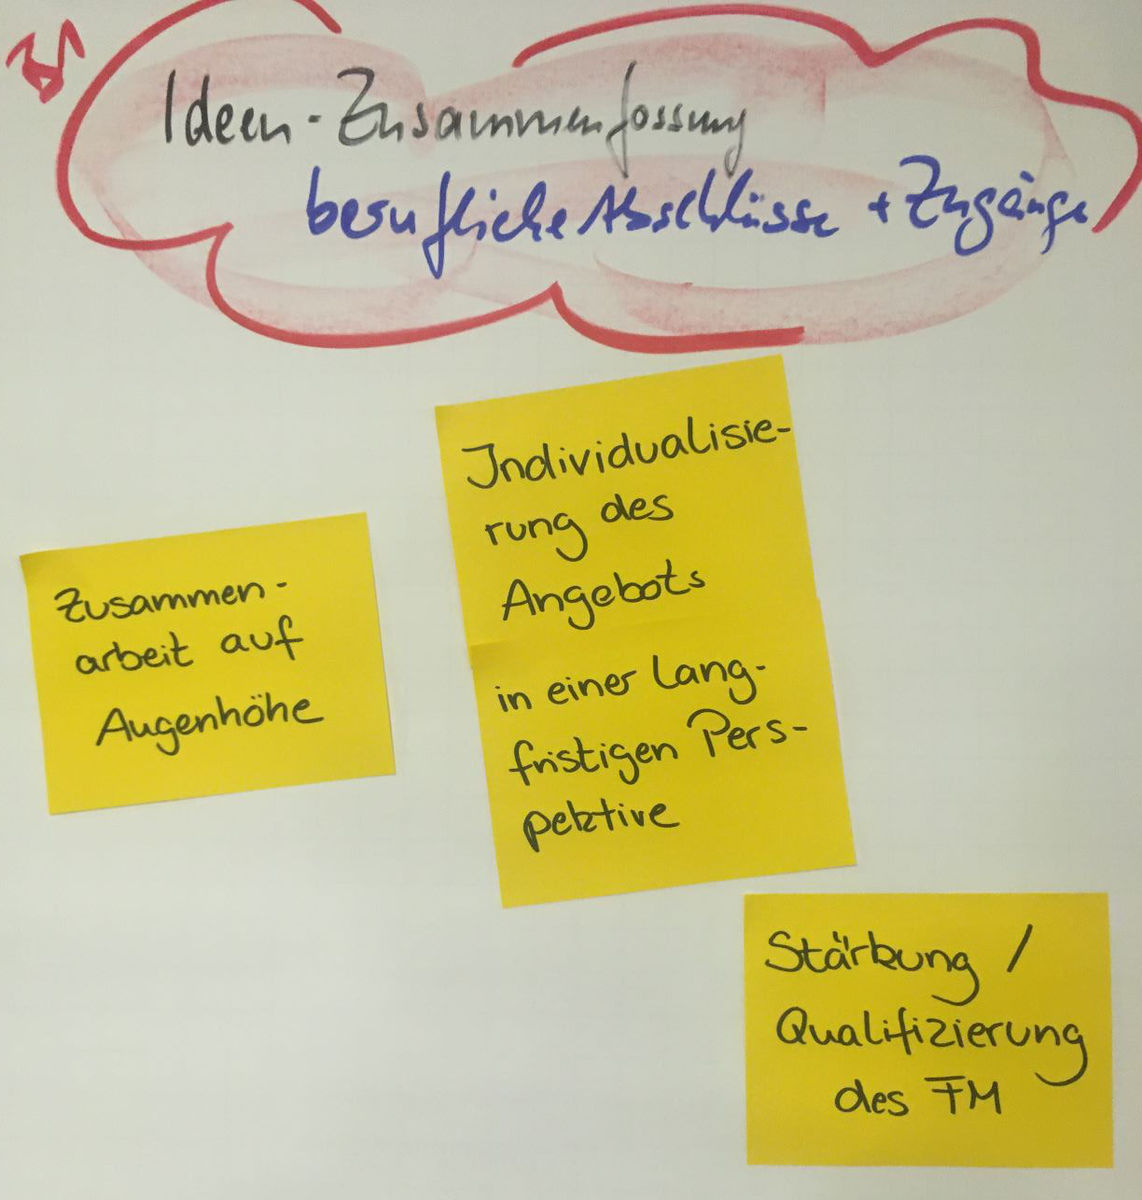 B1
Ideen-Zusammenfassung
berufliche Abschlüsse + Zugänge
Individualisie-
rung des
Angebots
in einer Lang-
fristigen Pers-
pektive
Zusammen-
arbeit auf
Augenhöhe
Stärkung /
Qualifizierung
des FM